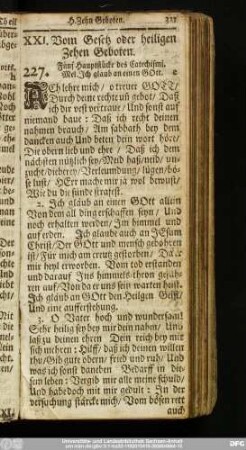 H. Zehn Geboten. 323
XXI. Vom Gesetz oder heiligen
Zehen Geboten.
Fünf Hauptstücke des Catechismi,
227. Mel. Ich glaub an einen GOtt. ꝛc
ACh lehre mich / o treuer GOTT/
Durch deine recht uñ gebot/ Daß
ich dir vest vertraue/ Und sonst auf
niemand baue: Daß ich recht deinen
nahmen brauch/ Am sabbath bey dem
dancken auch Und beten dein wort höre/
Die obern lieb und ehre/ Daß ich dem
nächsten nützlich sey/ Und haß/neid/ un-
zucht/dieberey/ Verleumdung/ lügen/bö-
se lust/ HErr mache mir ja wol bewust/
Wie du die sünde strafest.
2. Ich gläub an einen GOtt allein
Von dem all ding erschaffen seyn/ Und
noch erhalten werden/ Im himmel und
auf erden. Ich glaube auch an JEsum
Christ/ Der GOtt und mensch gebohren
ist/ Für mich am creutz gestorben/ Da er
mir heyl erworben. Vom tod erstanden
und darauf Ins himmels-thron gefah-
ren auf/ Von da er uns sein warten heist.
Ich gläub an GOtt den Heilgen Geist/
Und eine aufferstehung.
3. O Vater hoch und wundersam!
Sehr heilig sey bey mir dein nahm/ Und
laß zu deinen ehren Dein reich bey mir
sich mehren: Hilff/ daß ich deinen willen
thu/ Gib gute oberen/ fried und ruh/ Und
was ich sonst daneben Bedarff in die-
sem leben: Vergib mir alle meine schuld/
Und habe doch mit mir gedult: In der
versuchung stärcke mich/ Vom bösen rett
auch